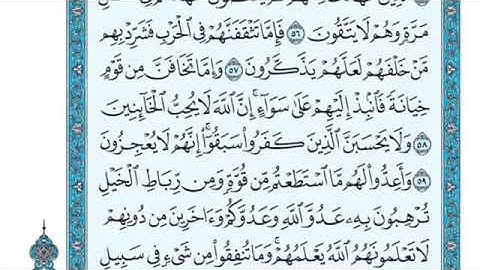 مَرَّةٍ وَهُمْ لَا يَتَّقُونَ ٥٦ فَإِمَّا تَثْقَفَنَّهُمْ فِي الْحَرْبِ فَشَرِّدْ بِهِم
مَّنْ خَلْفَهُمْ لَعَلَّهُمْ يَذَّكَّرُونَ ٥٧ وَإِمَّا تَخَافَنَّ مِن قَوْمٍ
خِيَانَةً فَانبِذْ إِلَيْهِمْ عَلَىٰ سَوَاءٍ ۚ إِنَّ اللَّهَ لَا يُحِبُّ الْخَائِنِينَ
٥٨ وَلَا يَحْسَبَنَّ الَّذِينَ كَفَرُوا سَبَقُوا ۚ إِنَّهُمْ لَا يُعْجِزُونَ
٥٩ وَأَعِدُّوا لَهُم مَّا اسْتَطَعْتُم مِّن قُوَّةٍ وَمِن رِّبَاطِ الْخَيْلِ
تُرْهِبُونَ بِهِ عَدُوَّ اللَّهِ وَعَدُوَّكُمْ وَءَاخَرِينَ مِن دُونِهِمْ
لَا تَعْلَمُونَهُمُ اللَّهُ يَعْلَمُهُمْ ۚ وَمَا تُنفِقُوا مِن شَيْءٍ فِي سَبِيلِ